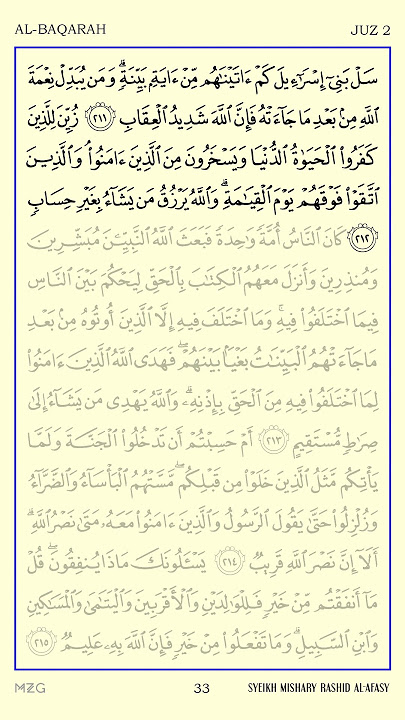 AL-BAQARAH JUZ 2
سَلْ بَنِىٓ إِسْرَٰٓءِيلَ كَمْ ءَاتَيْنَٰهُم مِّنْ ءَايَةٍۭ بَيِّنَةٍۗ وَمَن يُبَدِّلْ نِعْمَةَ
ٱللَّهِ مِنۢ بَعْدِ مَا جَآءَتْهُ فَإِنَّ ٱللَّهَ شَدِيدُ ٱلْعِقَابِ ٢١١ زُيِّنَ لِلَّذِينَ
كَفَرُوا۟ ٱلْحَيَوٰةُ ٱلدُّنْيَا وَيَسْخَرُونَ مِنَ ٱلَّذِينَ ءَامَنُوا۟ۘ وَٱلَّذِينَ
ٱتَّقَوْا۟ فَوْقَهُمْ يَوْمَ ٱلْقِيَٰمَةِۗ وَٱللَّهُ يَرْزُقُ مَن يَشَآءُ بِغَيْرِ حِسَابٍ
٢١٢ كَانَ ٱلنَّاسُ أُمَّةً وَٰحِدَةً فَبَعَثَ ٱللَّهُ ٱلنَّبِيِّـۧنَ مُبَشِّرِينَ
وَمُنذِرِينَ وَأَنزَلَ مَعَهُمُ ٱلْكِتَٰبَ بِٱلْحَقِّ لِيَحْكُمَ بَيْنَ ٱلنَّاسِ
فِيمَا ٱخْتَلَفُوا۟ فِيهِۚ وَمَا ٱخْتَلَفَ فِيهِ إِلَّا ٱلَّذِينَ أُوتُوهُ مِنۢ بَعْدِ
مَا جَآءَتْهُمُ ٱلْبَيِّنَٰتُ بَغْيًۢا بَيْنَهُمْۖ فَهَدَى ٱللَّهُ ٱلَّذِينَ ءَامَنُوا۟
لِمَا ٱخْتَلَفُوا۟ فِيهِ مِنَ ٱلْحَقِّ بِإِذْنِهِۦۗ وَٱللَّهُ يَهْدِى مَن يَشَآءُ إِلَىٰ
صِرَٰطٍ مُّسْتَقِيمٍ ٢١٣ أَمْ حَسِبْتُمْ أَن تَدْخُلُوا۟ ٱلْجَنَّةَ وَلَمَّا
يَأْتِكُم مَّثَلُ ٱلَّذِينَ خَلَوْا۟ مِن قَبْلِكُمۖ مَّسَّتْهُمُ ٱلْبَأْسَآءُ وَٱلضَّرَّآءُ
وَزُلْزِلُوا۟ حَتَّىٰ يَقُولَ ٱلرَّسُولُ وَٱلَّذِينَ ءَامَنُوا۟ مَعَهُۥ مَتَىٰ نَصْرُ ٱللَّهِۗ
أَلَآ إِنَّ نَصْرَ ٱللَّهِ قَرِيبٌ ٢١٤ يَسْـَٔلُونَكَ مَاذَا يُنفِقُونَۖ قُلْ
مَآ أَنفَقْتُم مِّنْ خَيْرٍ فَلِلْوَٰلِدَيْنِ وَٱلْأَقْرَبِينَ وَٱلْيَتَٰمَىٰ وَٱلْمَسَٰكِينِ
وَٱبْنِ ٱلسَّبِيلِۗ وَمَا تَفْعَلُوا۟ مِنْ خَيْرٍ فَإِنَّ ٱللَّهَ بِهِۦ عَلِيمٌ ٢١٥
MZG 33 SYEIKH MISHARY RASHID AL-AFASY